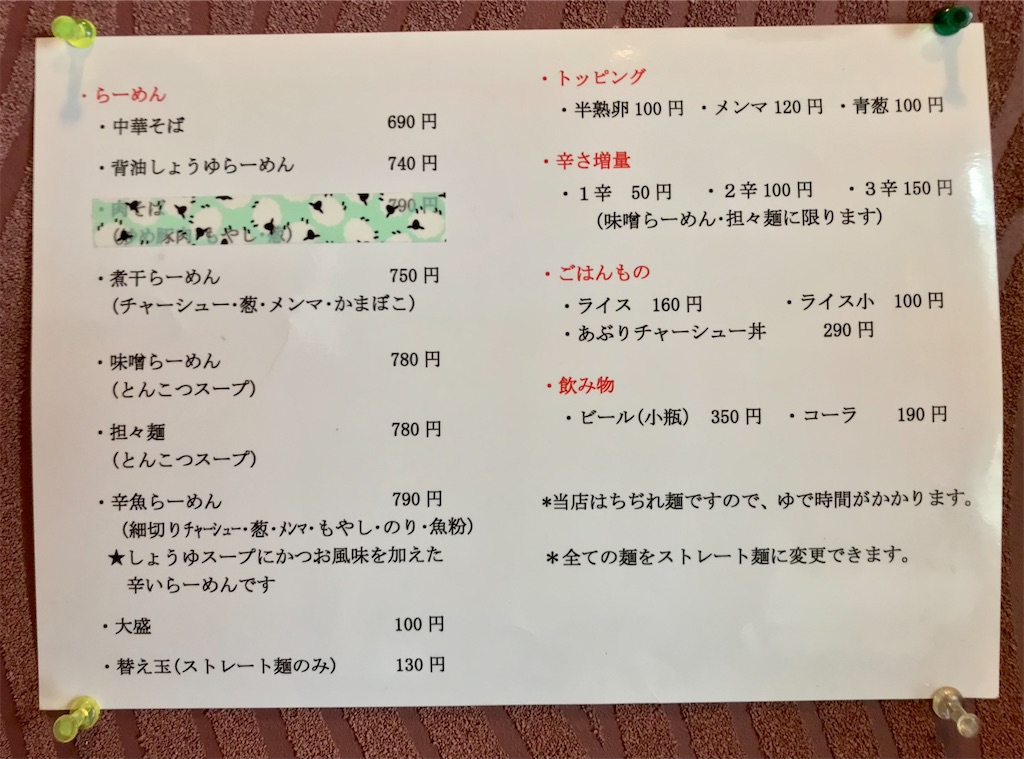 ・らーめん
・中華そば 690円
・背油しょうゆらーめん 740円
・肉そば 790円
(炒め豚肉・もやし・葱)
・煮干らーめん 750円
(チャーシュー・葱・メンマ・かまぼこ)
・味噌らーめん 780円
(とんこつスープ)
・担々麺 780円
(とんこつスープ)
・辛魚らーめん 790円
(細切りチャーシュー・葱・メンマ・もやし・のり・魚粉)
★しょうゆスープにかつお風味を加えた
辛いらーめんです
・大盛 100円
・替え玉(ストレート麺のみ) 130円
・トッピング
・半熟卵100円 ・メンマ120円 ・青葱100円
・辛さ増量
・1辛 50円 ・2辛100円 ・3辛150円
(味噌らーめん・担々麺に限ります)
・ごはんもの
・ライス 160円 ・ライス小 100円
・あぶりチャーシュー丼 290円
・飲み物
・ビール(小瓶) 350円 ・コーラ 190円
*当店はちぢれ麺ですので、ゆで時間がかかります。
*全ての麺をストレート麺に変更できます。